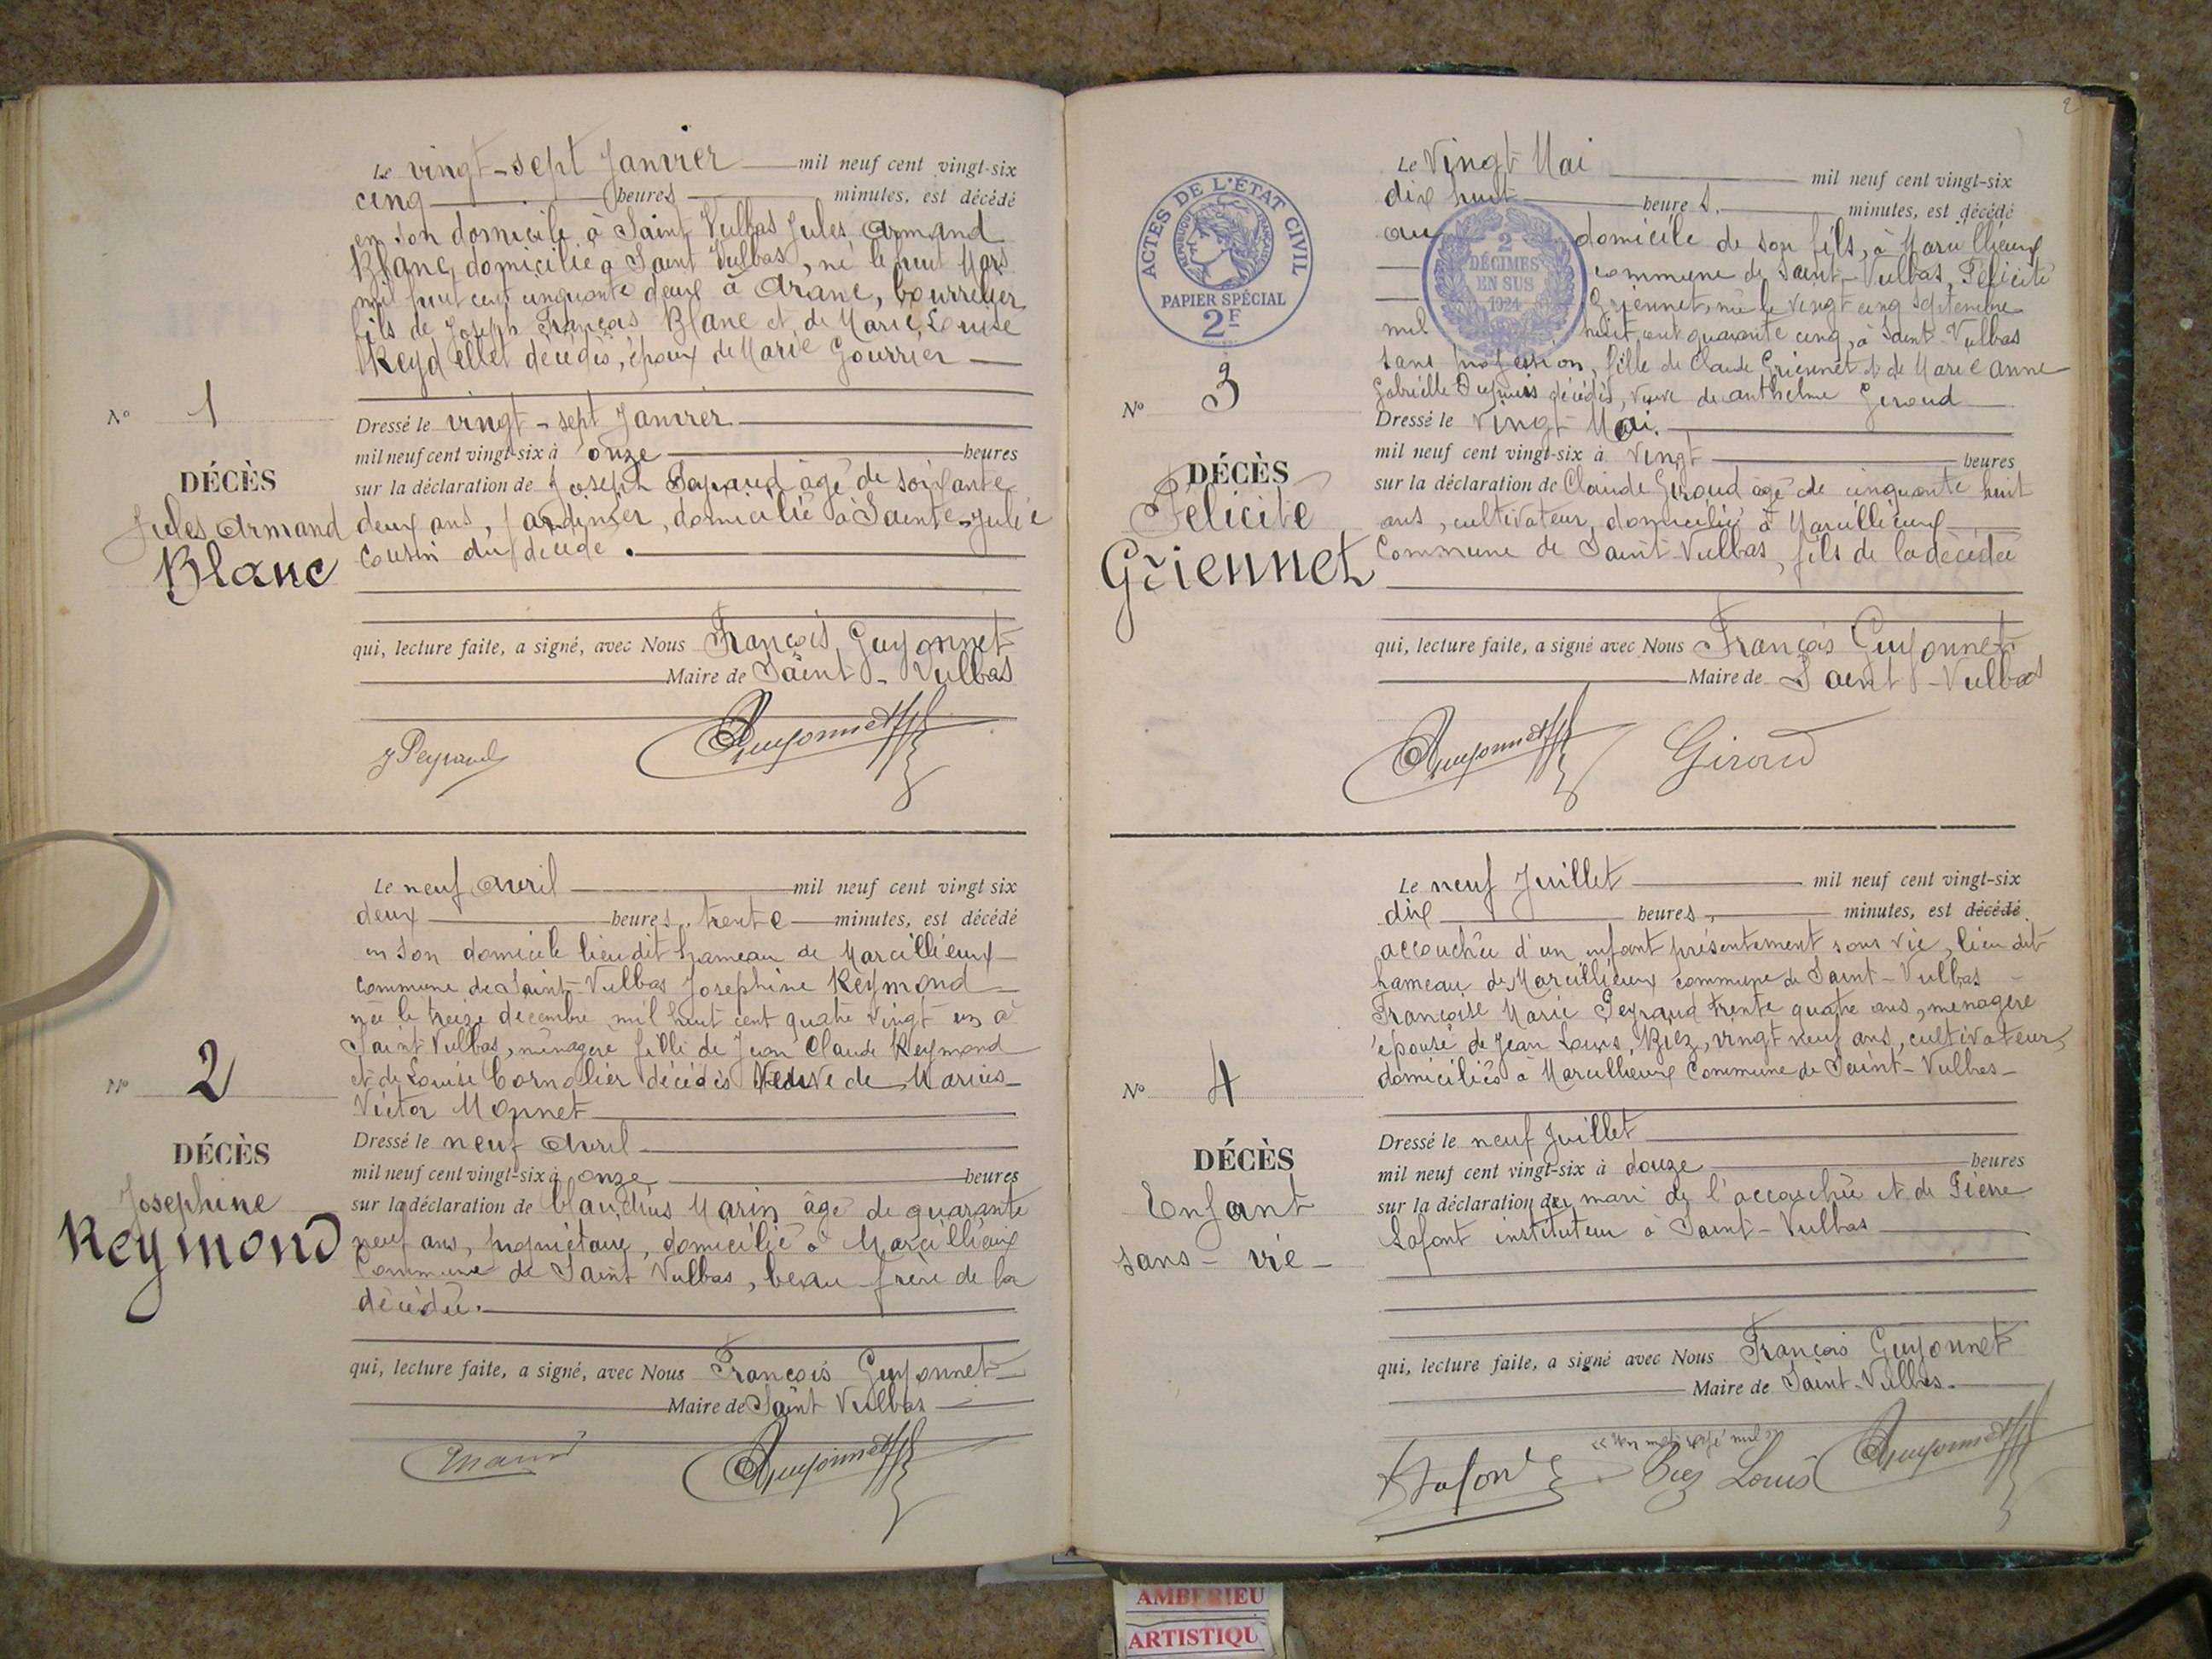 Le vingt-sept Janvier mil neuf cent vingt-six
cinq heures minutes, est décédé
en son domicile à Saint Vulbas Jules Armand
Blanc, domicilié à Saint Vulbas, né le huit Mars
mil huit cent cinquante deux à Aranc, bourrelier
fils de Joseph François Blanc et de Marie Louise
Reydellet décédés, époux de Marie Gourrier
Nº 1
DÉCÈS
Jules Armand
Blanc
Dressé le vingt-sept Janvier
mil neuf cent vingt-six à onze heures
sur la déclaration de Joseph Payraud âgé de soixante
deux ans, jardinier, domicilié à Sainte-Julie
cousin du décédé.
qui, lecture faite, a signé, avec Nous François Guyonnet
Maire de Saint-Vulbas
J Peyraud Guyonnet
Le neuf Avril mil neuf cent vingt six
deux heures, trente minutes, est décédé
en son domicile lieu dit hameau de Marcillieux
commune de Saint-Vulbas Josephine Reymond
née le treize décembre mil huit cent quatre vingt un à
Saint Vulbas, ménagère fille de Jean Claude Reymond
et de Louise Cornolier décédés Veuve de Marius
Victor Monnet
Nº 2
DÉCÈS
Josephine
Reymond
Dressé le neuf Avril
mil neuf cent vingt-six à onze heures
sur la déclaration de Claudius Marin âgé de quarante
neuf ans, propriétaire, domicilié à Marcillieux
Commune de Saint Vulbas, beau-frère de la
décédée.
qui, lecture faite, a signé, avec Nous François Guyonnet
Maire de Saint Vulbas
Marin Guyonnet
2
ACTES DE L'ÉTAT CIVIL
RÉPUBLIQUE FRANÇAISE
PAPIER SPÉCIAL
2F
2
DÉCIMES
EN SUS
1924
Le Vingt Mai mil neuf cent vingt-six
dix huit heures, minutes, est décédé
au domicile de son fils, à Marcillieux
commune de Saint-Vulbas, Félicité
Griennet, née le vingt cinq septembre
mil huit cent quarante cinq, à Saint-Vulbas
sans profession, fille de Claude Griennet et de Marie Anne
Gabrielle Dupuis décédés, veuve de Anthelme Giroud
Nº 3
DÉCÈS
Félicité
Griennet
Dressé le Vingt Mai.
mil neuf cent vingt-six à Vingt heures
sur la déclaration de Claude Giroud âgé de cinquante huit
ans, cultivateur, domicilié à Marcillieux
Commune de Saint-Vulbas, fils de la décédée
qui, lecture faite, a signé avec Nous François Guyonnet
Maire de Saint-Vulbas
Guyonnet Giroud
Le neuf Juillet mil neuf cent vingt-six
dix heures, minutes, est décédé
accouchée d'un enfant présentement sans vie, lieu dit
hameau de Marcillieux commune de Saint-Vulbas
Françoise Marie Peyraud trente quatre ans, ménagère
épouse de Jean Louis Biez, vingt neuf ans, cultivateur,
domiciliés à Marcillieux Commune de Saint-Vulbas
Nº 4
DÉCÈS
Enfant
sans-vie
Dressé le neuf Juillet
mil neuf cent vingt-six à douze heures
sur la déclaration du mari de l'accouchée et de Pierre
Lafont instituteur à Saint-Vulbas
qui, lecture faite, a signé avec Nous François Guyonnet
Maire de Saint-Vulbas.
Lafont Biez Louis Guyonnet
AMBERIEU
ARTISTIQU